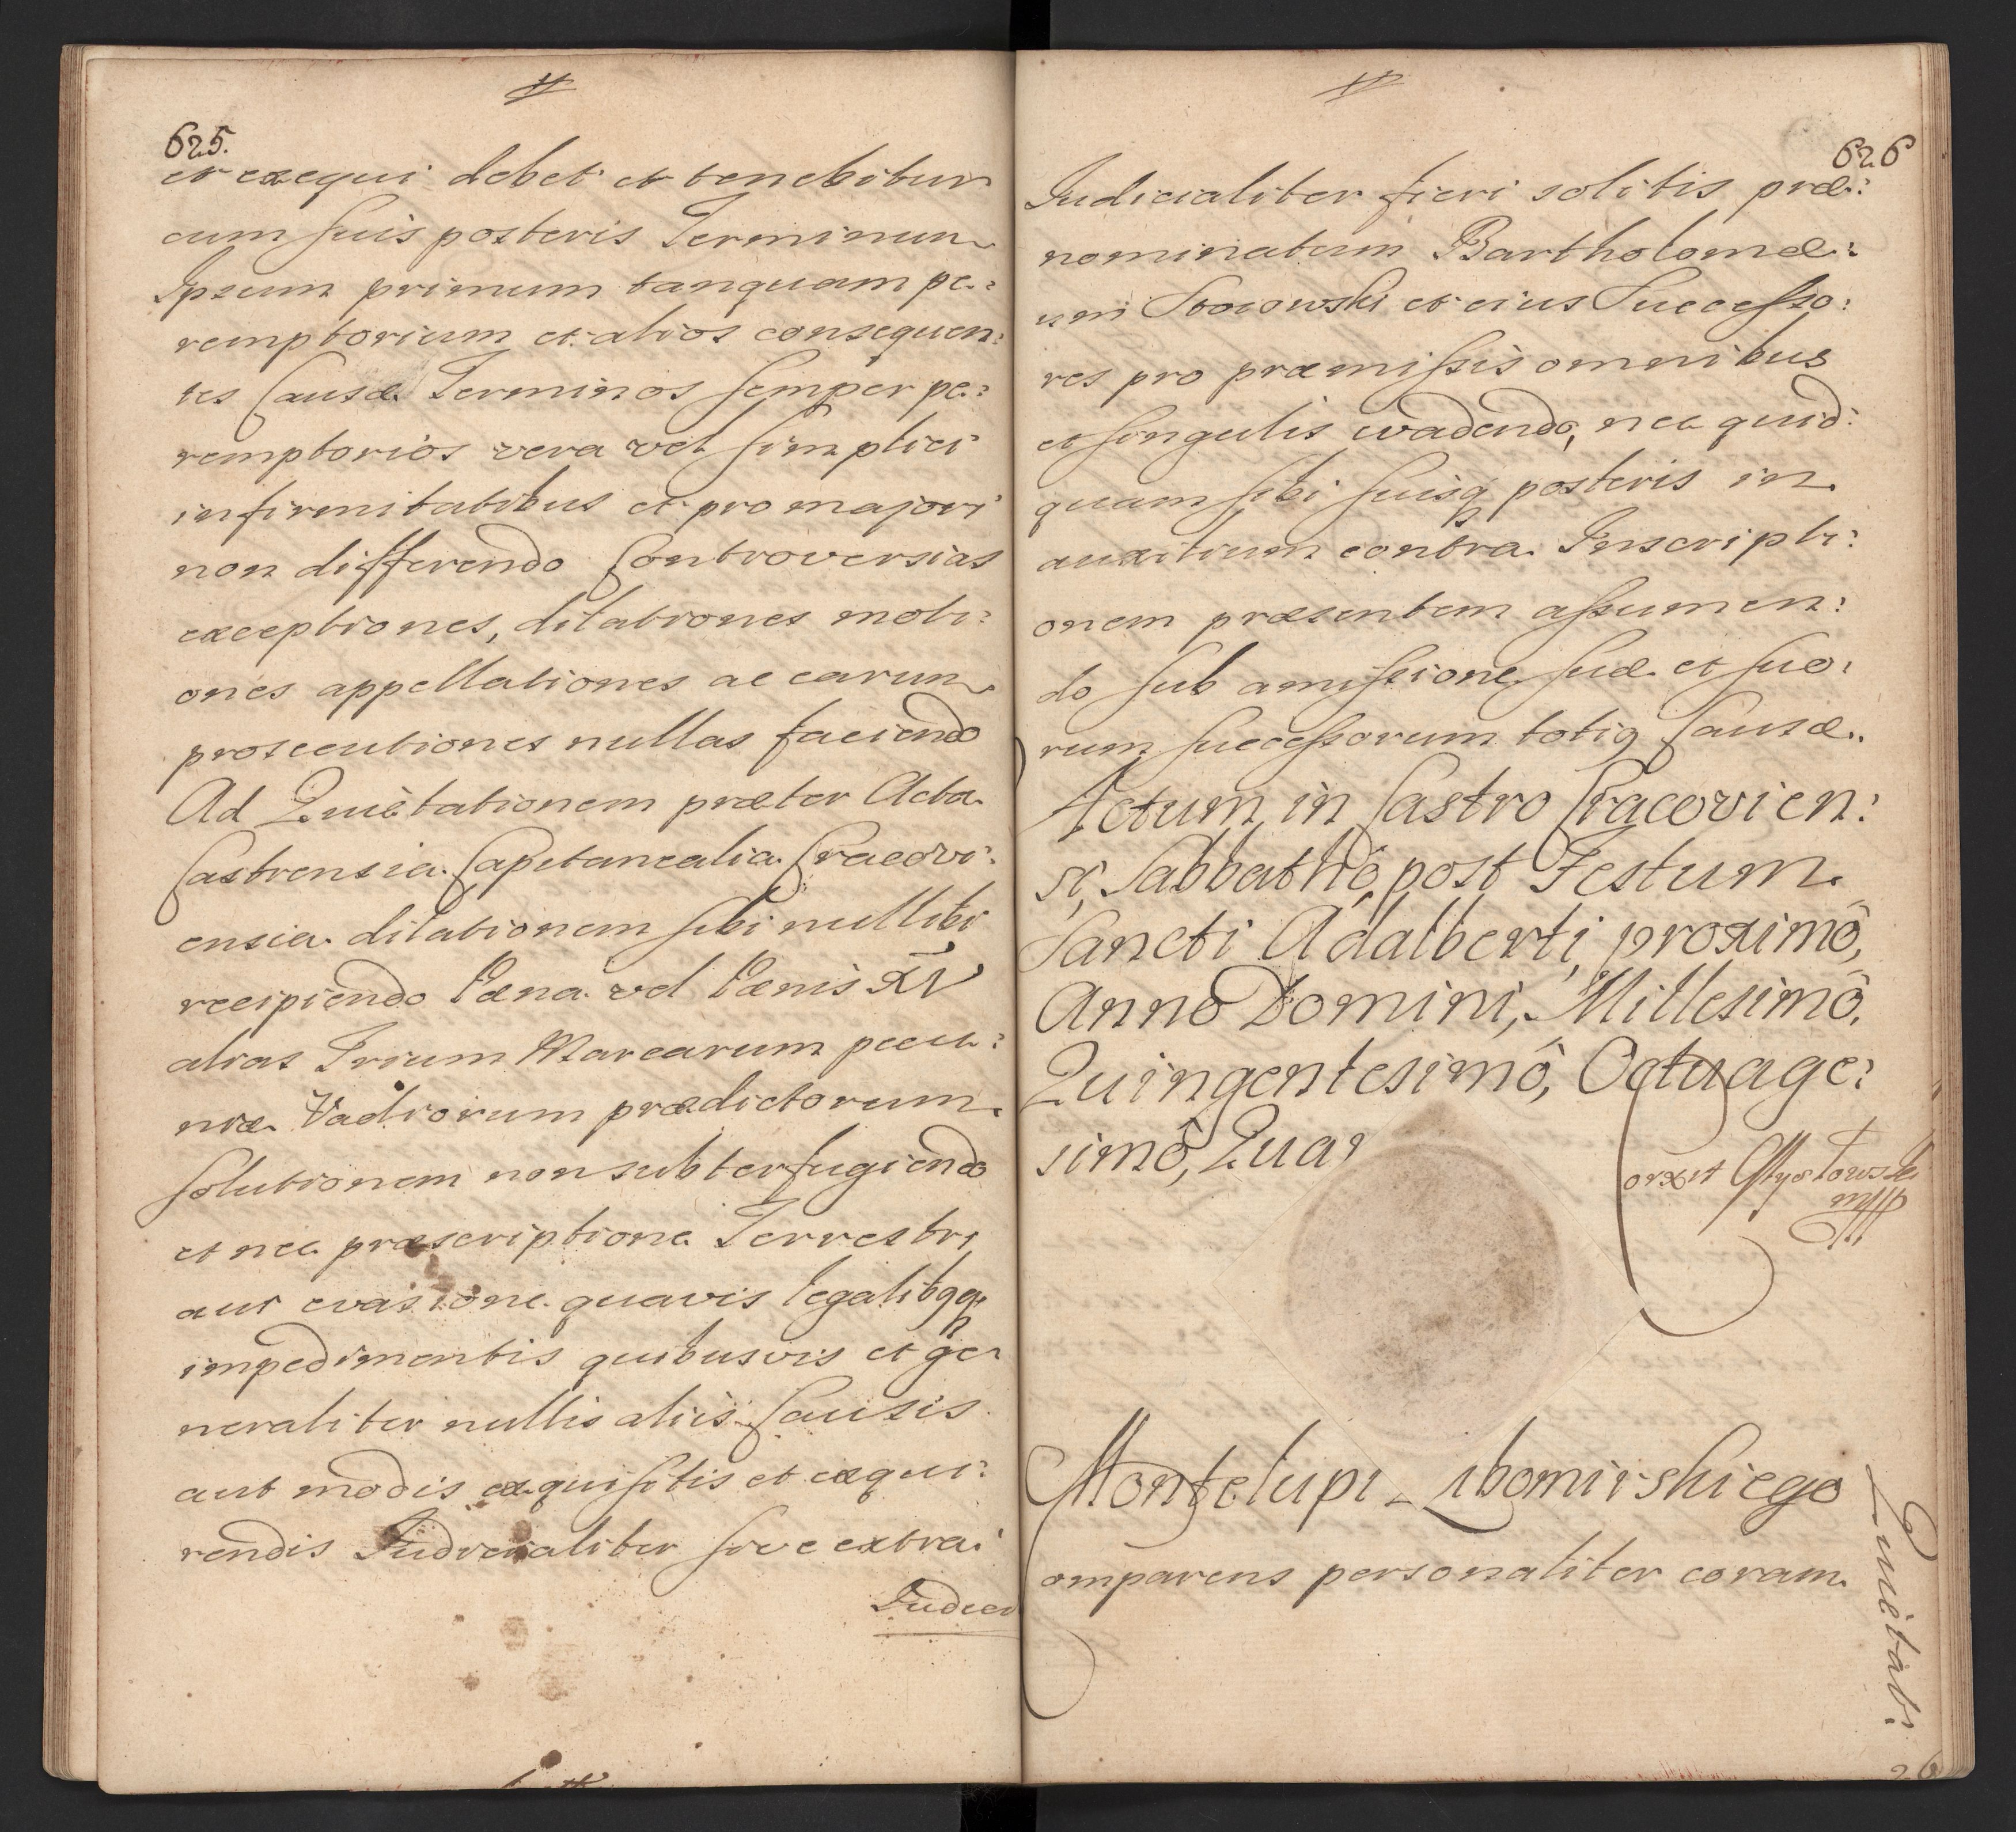 625.
et exequi debet et tenebitur
cum suis posteris Terminum
Ipsum primum tanquam pe:
remptorium et alios consequen:
tes Causæ Terminos semper pe:
remptorios vera vel simplici
infirmitatibus et pro majori
non differendo Controversias
exceptiones, dilationes moti:
ones appellationes ac earum
prosecutiones nullas faciendo
Ad Quietationem præter Acta
Castrensia Capitanealia Cracovi:
ensia dilationem sibi nullibi
recipiendo Pæna vel Pænis XV
alias Trium Marcarum pecu:
niæ Vadiorum prædictorum
solutionem non subterfugiendo
et nec præscriptione Terrestri
aut evasione quavis legalibqq
impedimentis quibusvis et ge:
neraliter nullis aliis Causis
aut modis exquisitis et exqui:
rendis Judicialiter sive extra:
Judici
626
Judicialiter fieri solitis præ:
nominatum Bartholomæ:
um Stoiowski et eius Successo:
res pro præmissis omnibus
et singulis evadendo, nec quid:
quam sibi suisq posteris in
auxilium contra Inscripti:
onem præsentem assumen:
do sub amissione suæ et suo:
rum successorum totiq Causæ.
Actum in Castro Cracovien:
si, Sabbathô post Festum
Sancti Adalberti, proximô,
Annô Domini, Millesimô,
Quingentesimô, Octuage:
simô, Quar
Montelupi Lubomirskiego
omparens personaliter coram
Quietat: